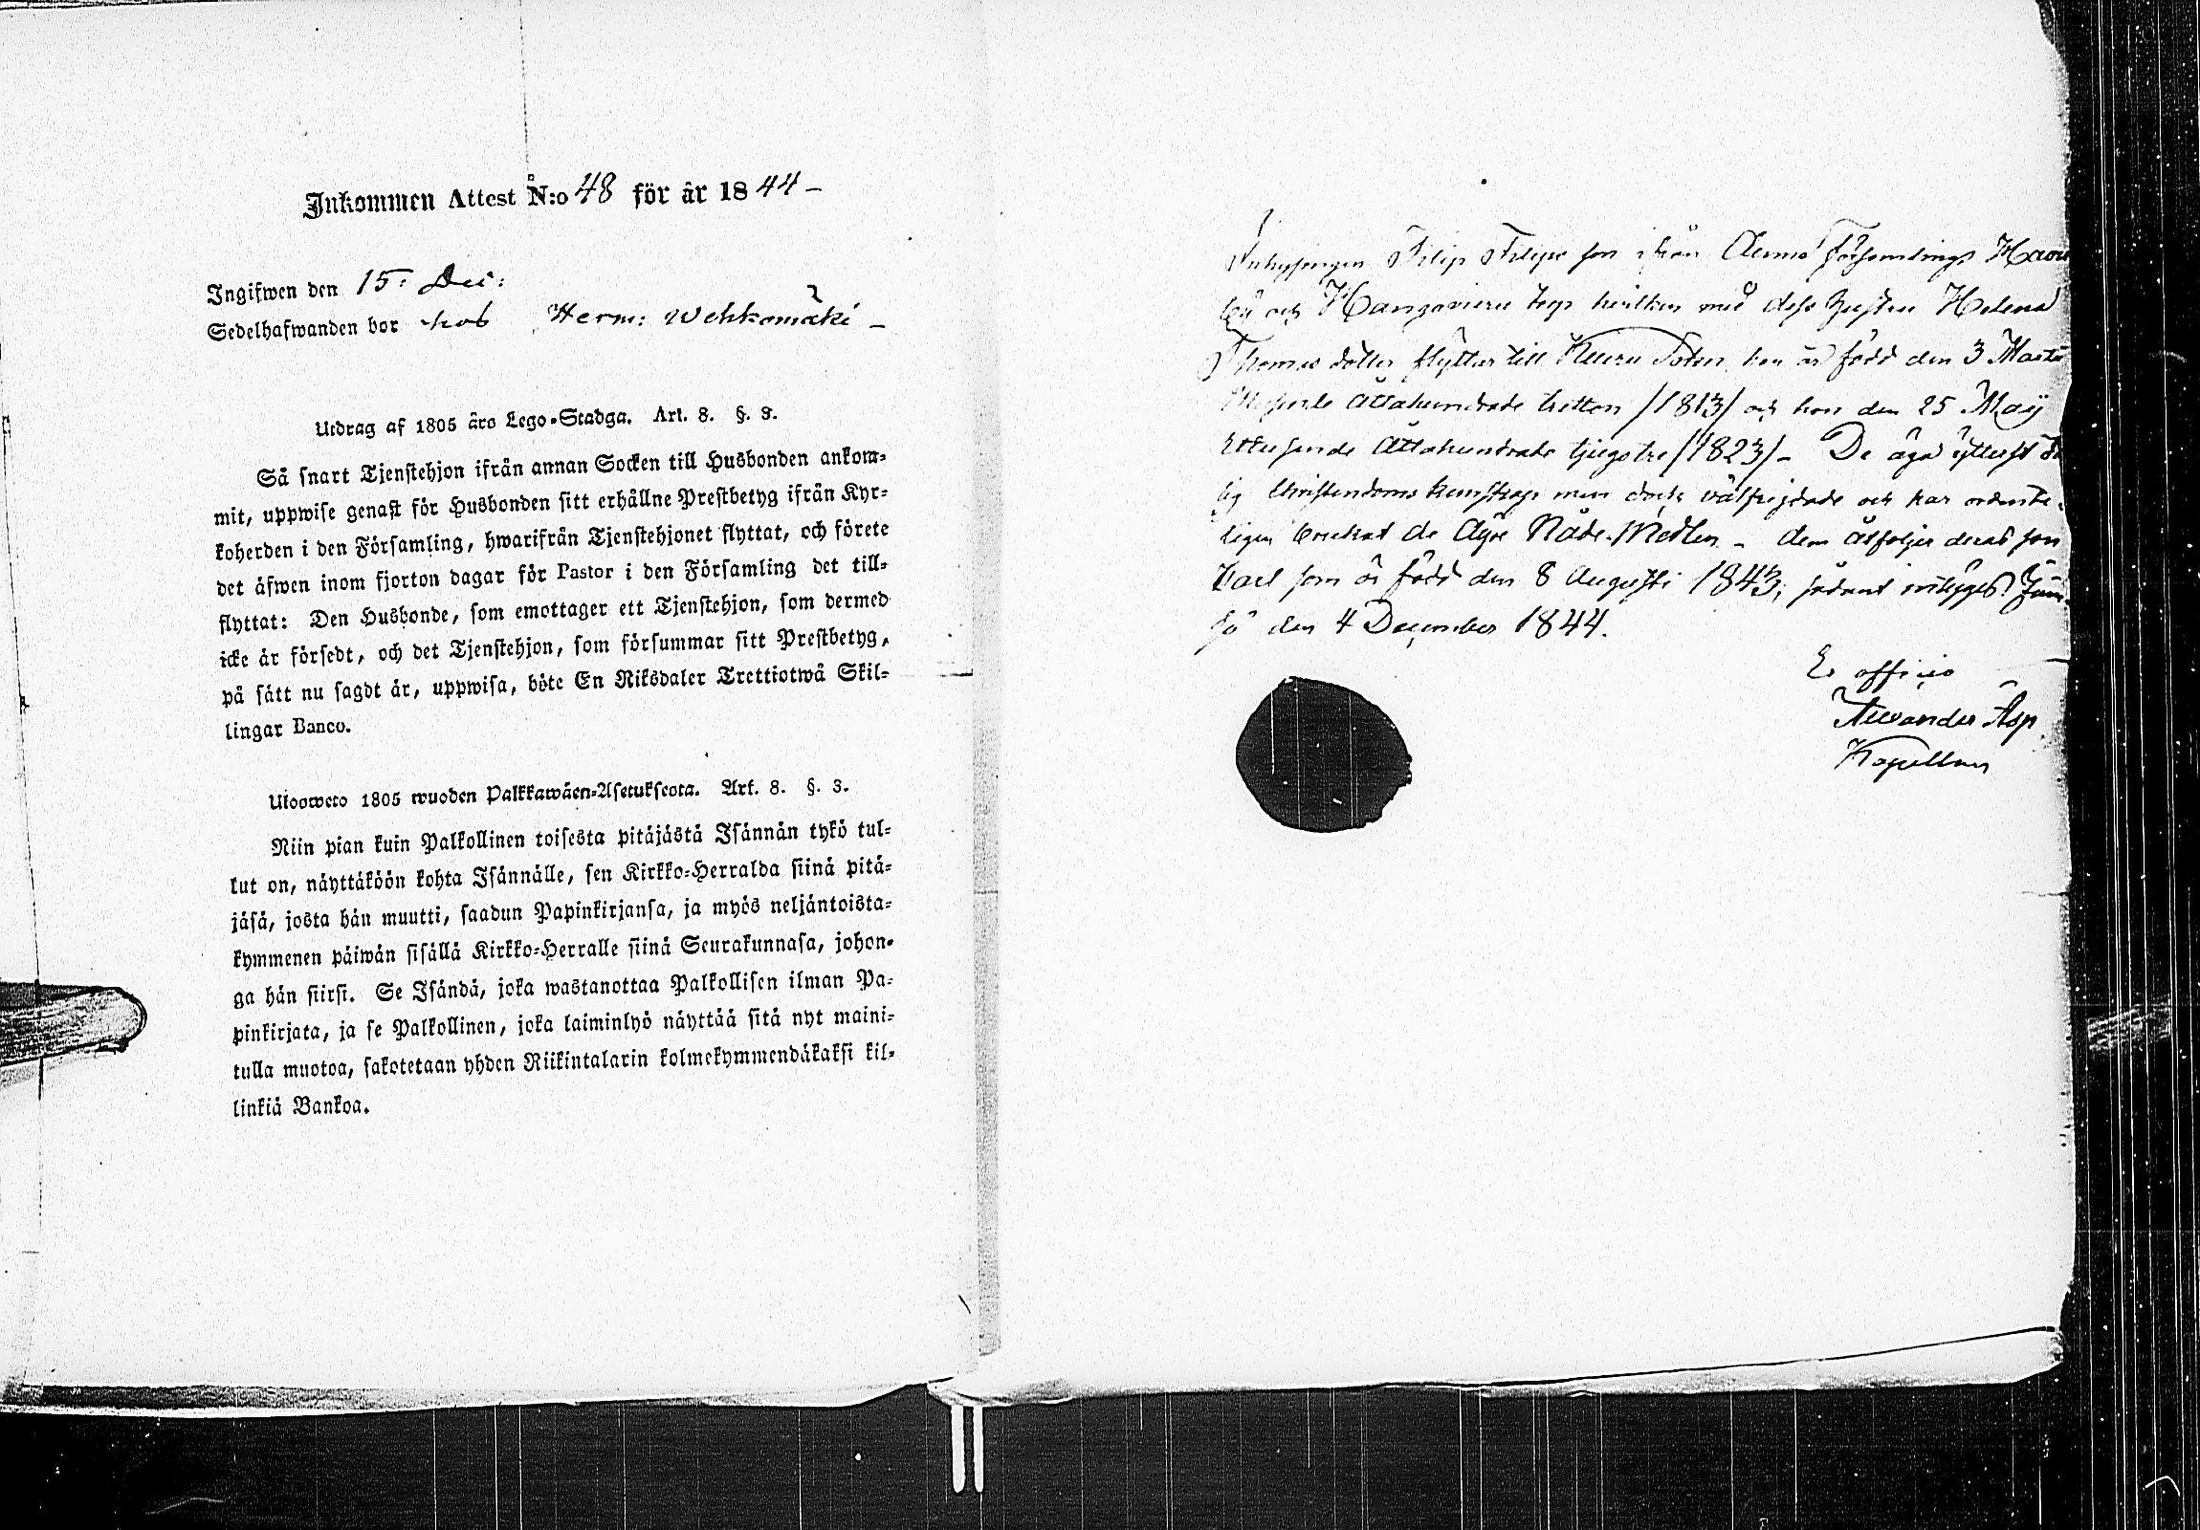 Inkommen Attest N:o 48 för år 1844 –
Ingifwen den 15: Dec:
Sedelhafwanden bor hos Herm: Wehkomäki –
Utdrag af 1805 års Lego-Stadga. Art. 8. §. 3.
Så snart Tjenstehjon ifrån annan Socken till Husbonden ankom-
mit, uppwise genast för Husbonden sitt erhållne Prestbetyg ifrån Kyr-
koherden i den Församling, hwarifrån Tjenstehjonet flyttat, och förete
det äfwen inom fjorton dagar för Pastor i den Församling det till-
flyttat: Den Husbonde, som emottager ett Tjenstehjon, som dermed
icke är försedt, och det Tjenstehjon, som försummar sitt Prestbetyg,
på sätt nu sagdt är, uppwisa, böte En Riksdaler Trettiotwå Skil-
lingar Banco.
Ulosweto 1805 wuoden Palkkawäen-Asetuksesta. Art. 8. §. 3.
Niin pian kuin Palkollinen toisesta pitäjästä Isännän tykö tul-
lut on, näyttäköön kohta Isännälle, sen Kirkko-Herralda siinä pitä-
jäsä, josta hän muutti, saadun Papinkirjansa, ja myös neljäntoista-
kymmenen päiwän sisällä Kirkko-Herralle siinä Seurakunnasa, johon-
ga hän siirsi. Se Isändä, joka wastanottaa Palkollisen ilman Pa-
pinkirjata, ja se Palkollinen, joka laiminlyö näyttää sitä nyt maini-
tulla muotoa, sakotetaan yhden Riikintalarin kolmekymmendäkaksi kil-
linkiä Bankoa.
Inhysingen Filip Filips son ifrån Församlings
by och torp hvilken med dess hustru Helena
Thomas dotter flyttar till Keuru Soken, han är född den 3 Martii
Attahundrade tretton /1813/ och hon den 25 Maij
Ettusende Attahundrade tjugotre /1823/ – De äga ytterst
lig Christendoms kunskap men dock välfrejdade och har ordente-
ligen brukat de Dyre Nåde-Medlen – dem åtföljer deras son
Carl som är född den 8 Augusti 1843; sådant intygges
den 4 December 1844.
Ex officio
Alexander Asp
Kapellan